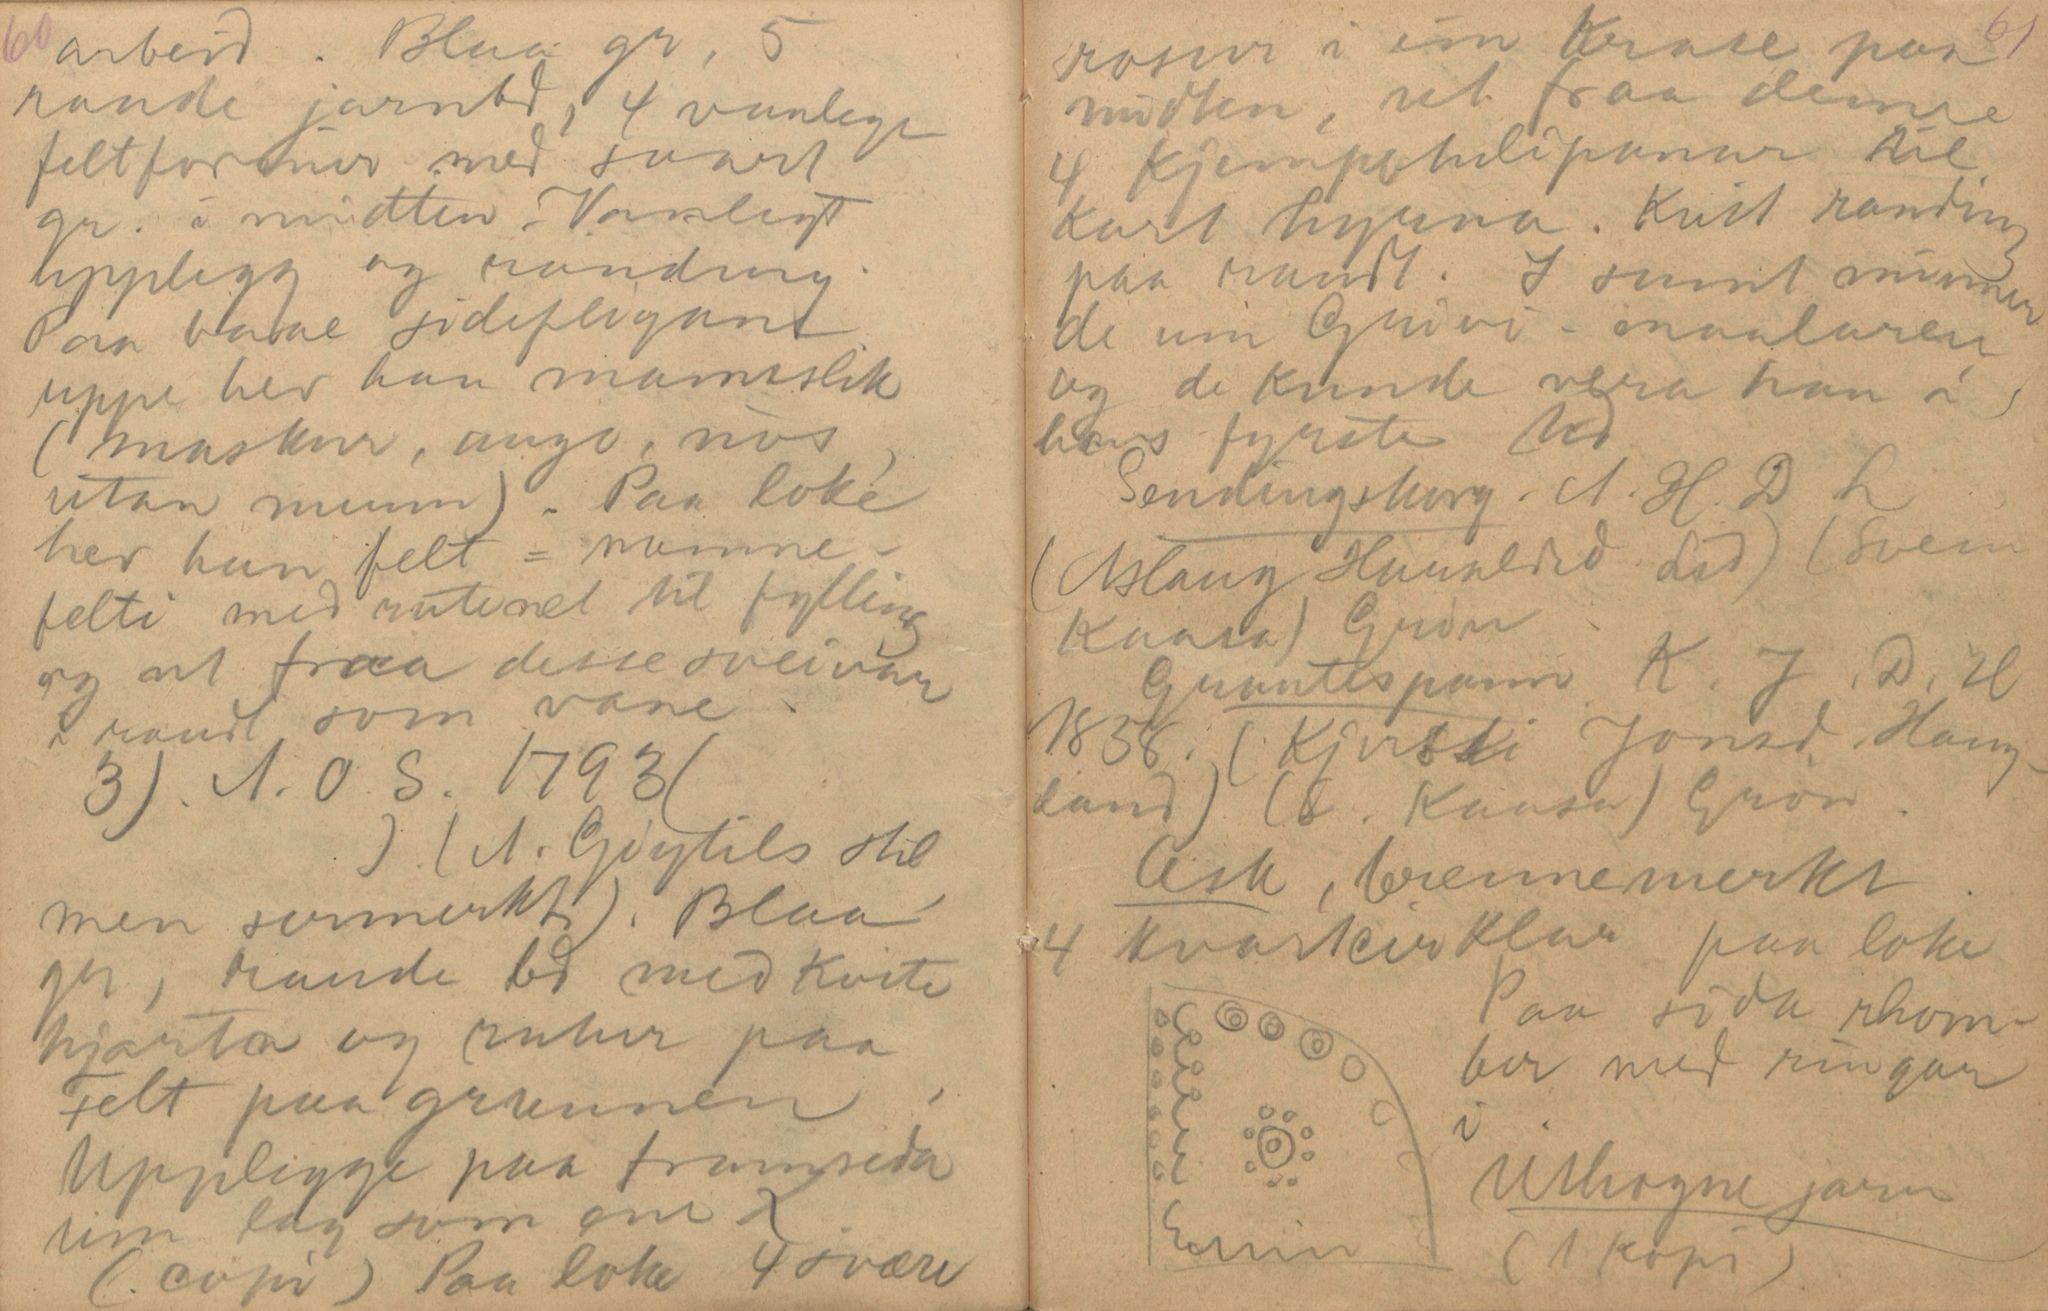 60
arbeid. Blaa gr, 5
raude jarnbd, 4 vanlege
feltformer med svart
gr. i midten. Vanlegt
upplegg og randing.
Paa baae sidefligane
uppe her han mannslik
(maskur, augo, nos,
utan munn). Paa loke
her han felt = namne-
felti med rutenet til fylling
og ut fraa desse sveivar
i raudt som vane.
3). A. O. S. 1793 (
). (A. Göytils stil
men sermerkt). Blaa
gr, raude bd med kvite
hjarta og rutur paa
Felt paa grunnen,
Upplegge paa framsida
um lag som onr 2.
(copi) Paa loke 4 svære
61
rosur i ein Krase paa
midten, ut fraa denne
4 Kjempetulipanar til
kart hyrna. Kvit randing
paa raudt. I sumt minner
de um Guivi-maalaren
og de kunde vera han i
hans fyrste tid
Sendingskorg. A. H. D. L
(Aslaug Haraldsd. Lid) (Svein
Kaasa) Grön
Grautespann K. J. D. H
1838. (Kjersti Jonsd. Haug-
land) (S. Kaasa) Grön.
Ask, brennemerkt.
4 kvartcirklar paa loke
Paa sida rhom-
ber med ringar
i.
Uthogne jarn
(1 Kopi)